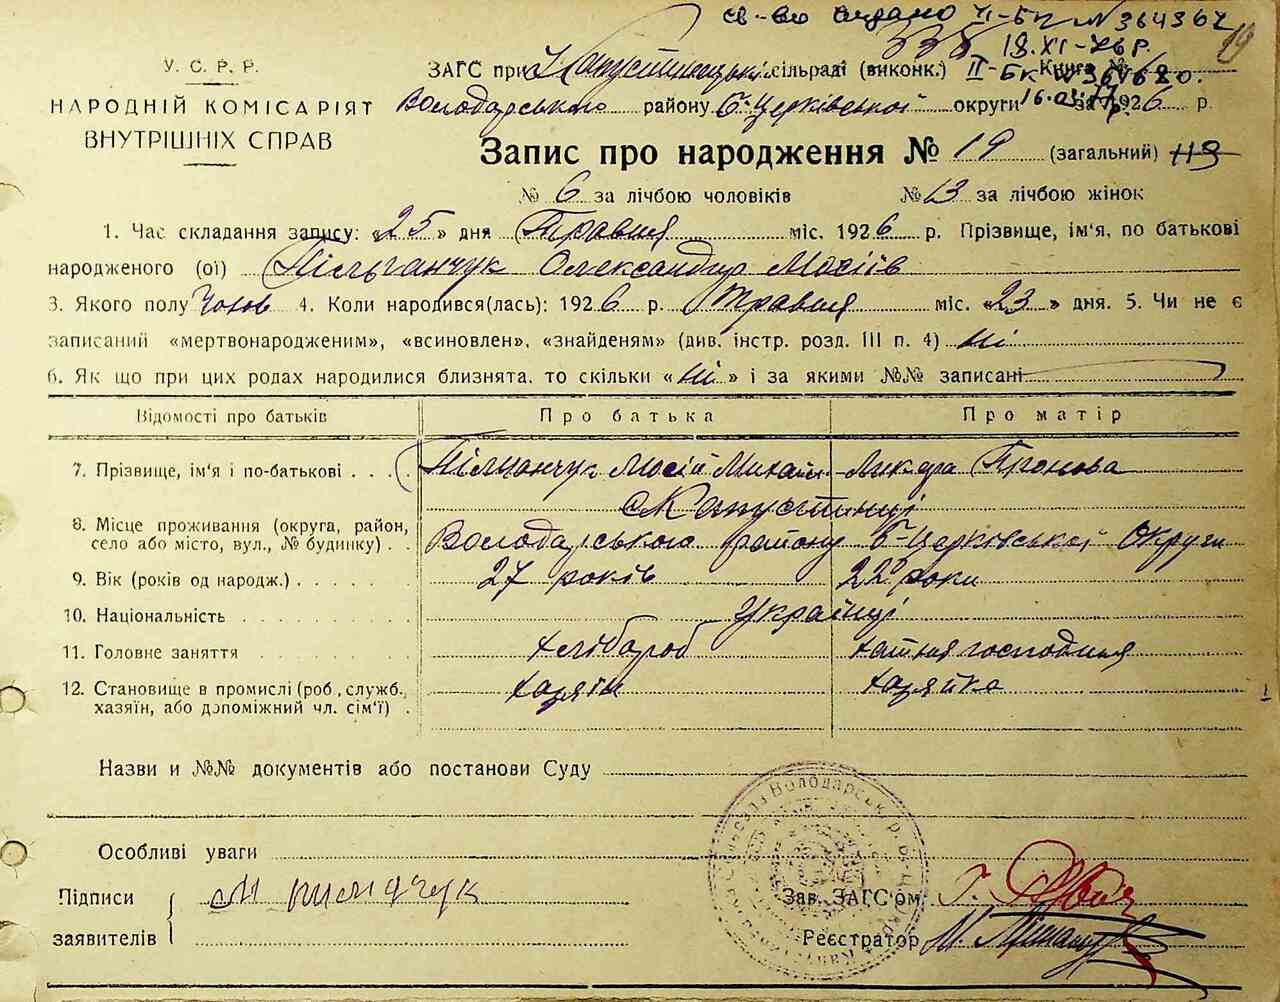 св-во видано II-БП № 364364
338 18.XI-76 р. 19
У. С. Р. Р. ЗАГС при Капустинецькій сільраді (виконк.) II-БК Книга №
НАРОДНІЙ КОМІСАРІЯТ Володарського району Б-Церківської округи за 1926 р.
ВНУТРІШНІХ СПРАВ
Запис про народження № 19 (загальний) 113
№ 6 за лічбою чоловіків № 13 за лічбою жінок
1. Час складання запису: «25» дня Травня міс. 1926 р. Прізвище, ім'я, по батькові
народженого (ої) Пільганчук Олександр Мосіїв
3. Якого полу Чолов 4. Коли народився(лась): 1926 р. Травня міс. «23» дня. 5. Чи не є
записаний «мертвонародженим», «всиновлен», «знайденям» (див. інстр. розд. III п. 4) ні
6. Як що при цих родах народилися близнята, то скільки «ні» і за якими №№ записані
Відомості про батьків Про батька Про матір
7. Прізвище, ім'я і по-батькові . . . Пільганчук Мосій Михайл
с. Капустинці
8. Місце проживання (округа, район,
село або місто, вул., № будинку) . . Володарського району Б-Церківської Округи
9. Вік (років од народж.) . . . . . 27 років 22 роки
10. Національність . . . . . . . . Українці
11. Головне заняття . . . . . . . хлібароб хатня господиня
12. Становище в промислі (роб., служб., хазяїн хазяйка
хазяїн, або допоміжний чл. сім'ї) .
Назви и №№ документів або постанови Суду
Особливі уваги
Підписи
заявителів
Зав. ЗАГС'ом
Реєстратор